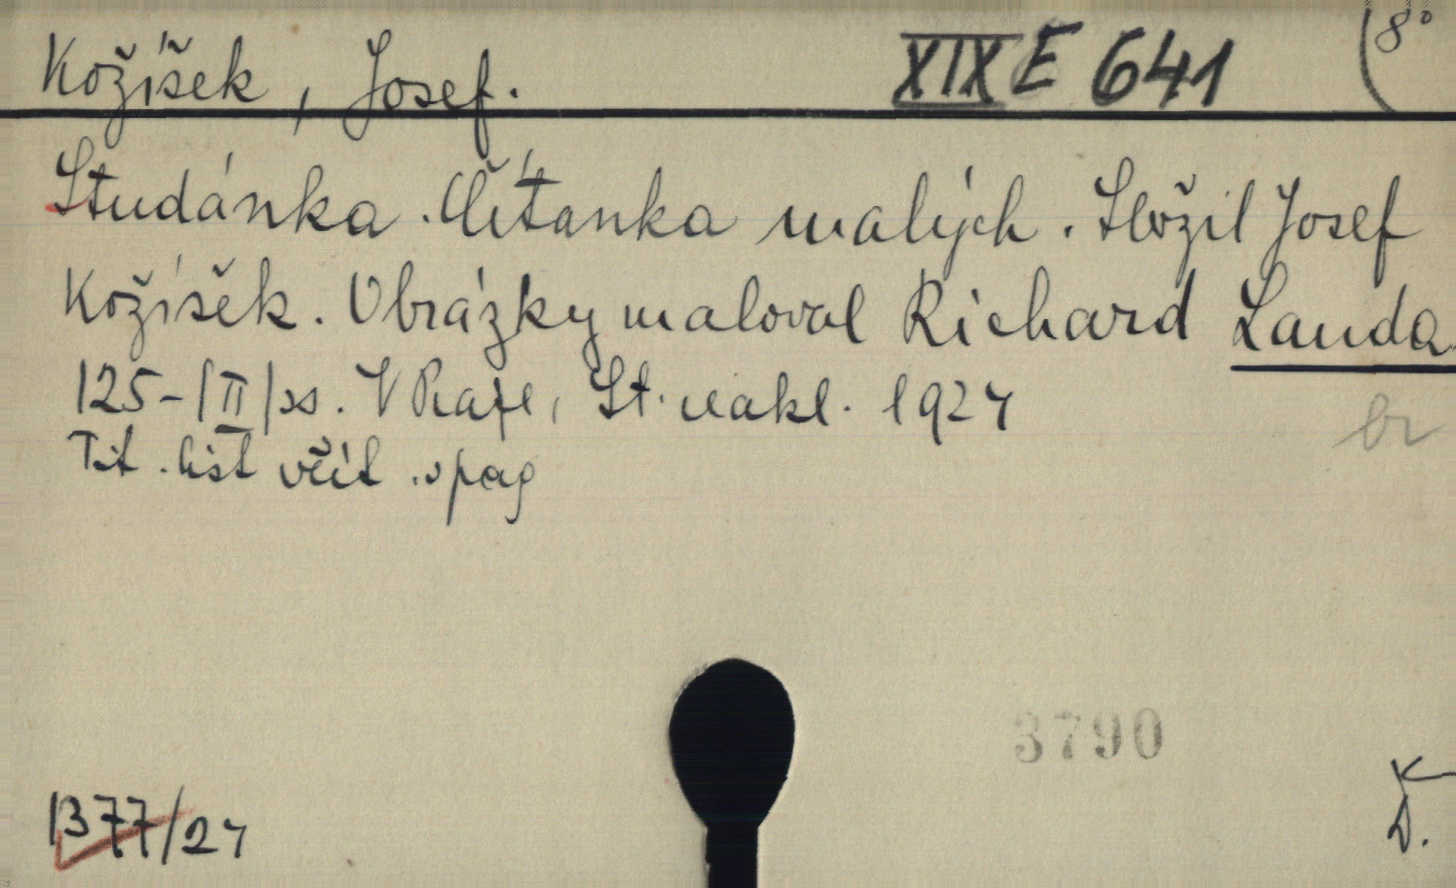 Kožíšek, Josef. XIX E 641 8°
Studánka. Čítanka malých. Složil Josef
Kožíšek. Obrázky maloval Richard Lauda.
125-[II] ss. V Praze, St. nakl. 1924
Tit. list včít. v pag
br
3790
1377/24
K
D.